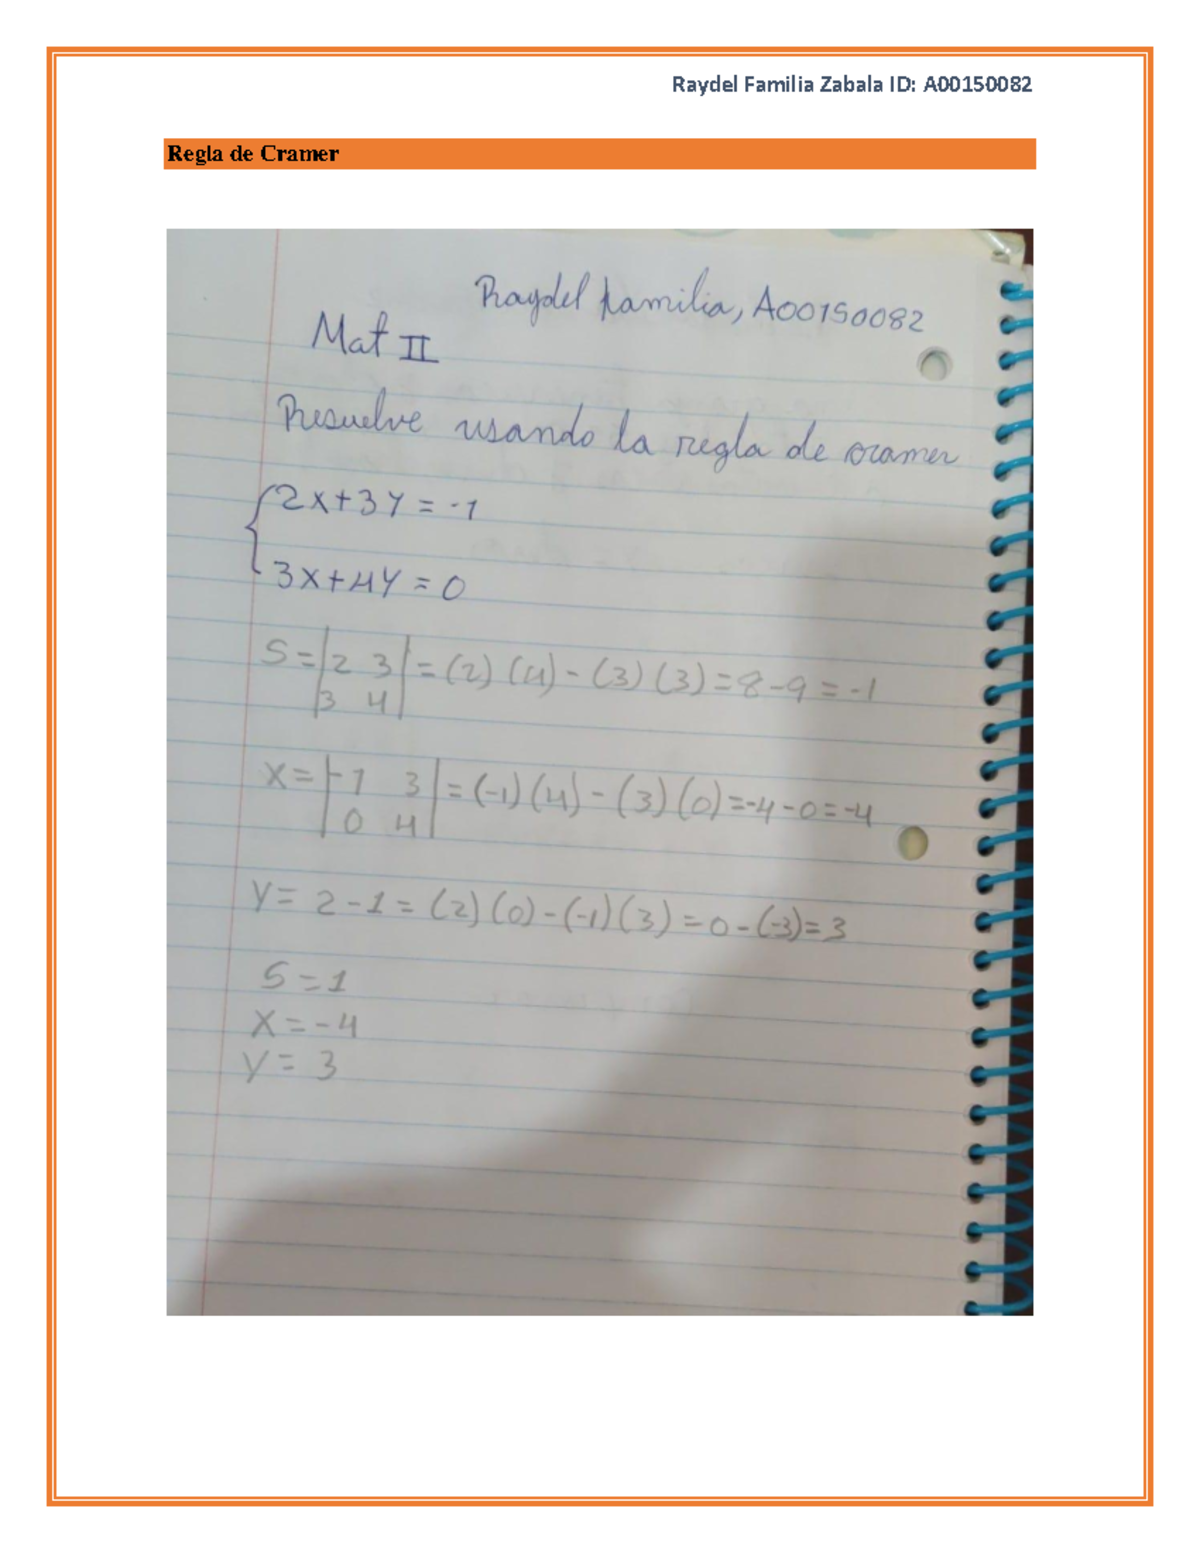 Raydel Familia Zabala ID: A00150082
Regla de Cramer
Raydel Familia, A00150082
Mat II
Resuelve usando la regla de cramer
2x+3y=-1
3x+4y=0
S=|2 3|=(2)(4)-(3)(3)=8-9=-1
|3 4|
x=|-1 3|=(-1)(4)-(3)(0)=-4-0=-4
|0 4|
y=2-1=(2)(0)-(-1)(3)=0-(-3)=3
S=1
x=-4
y=3